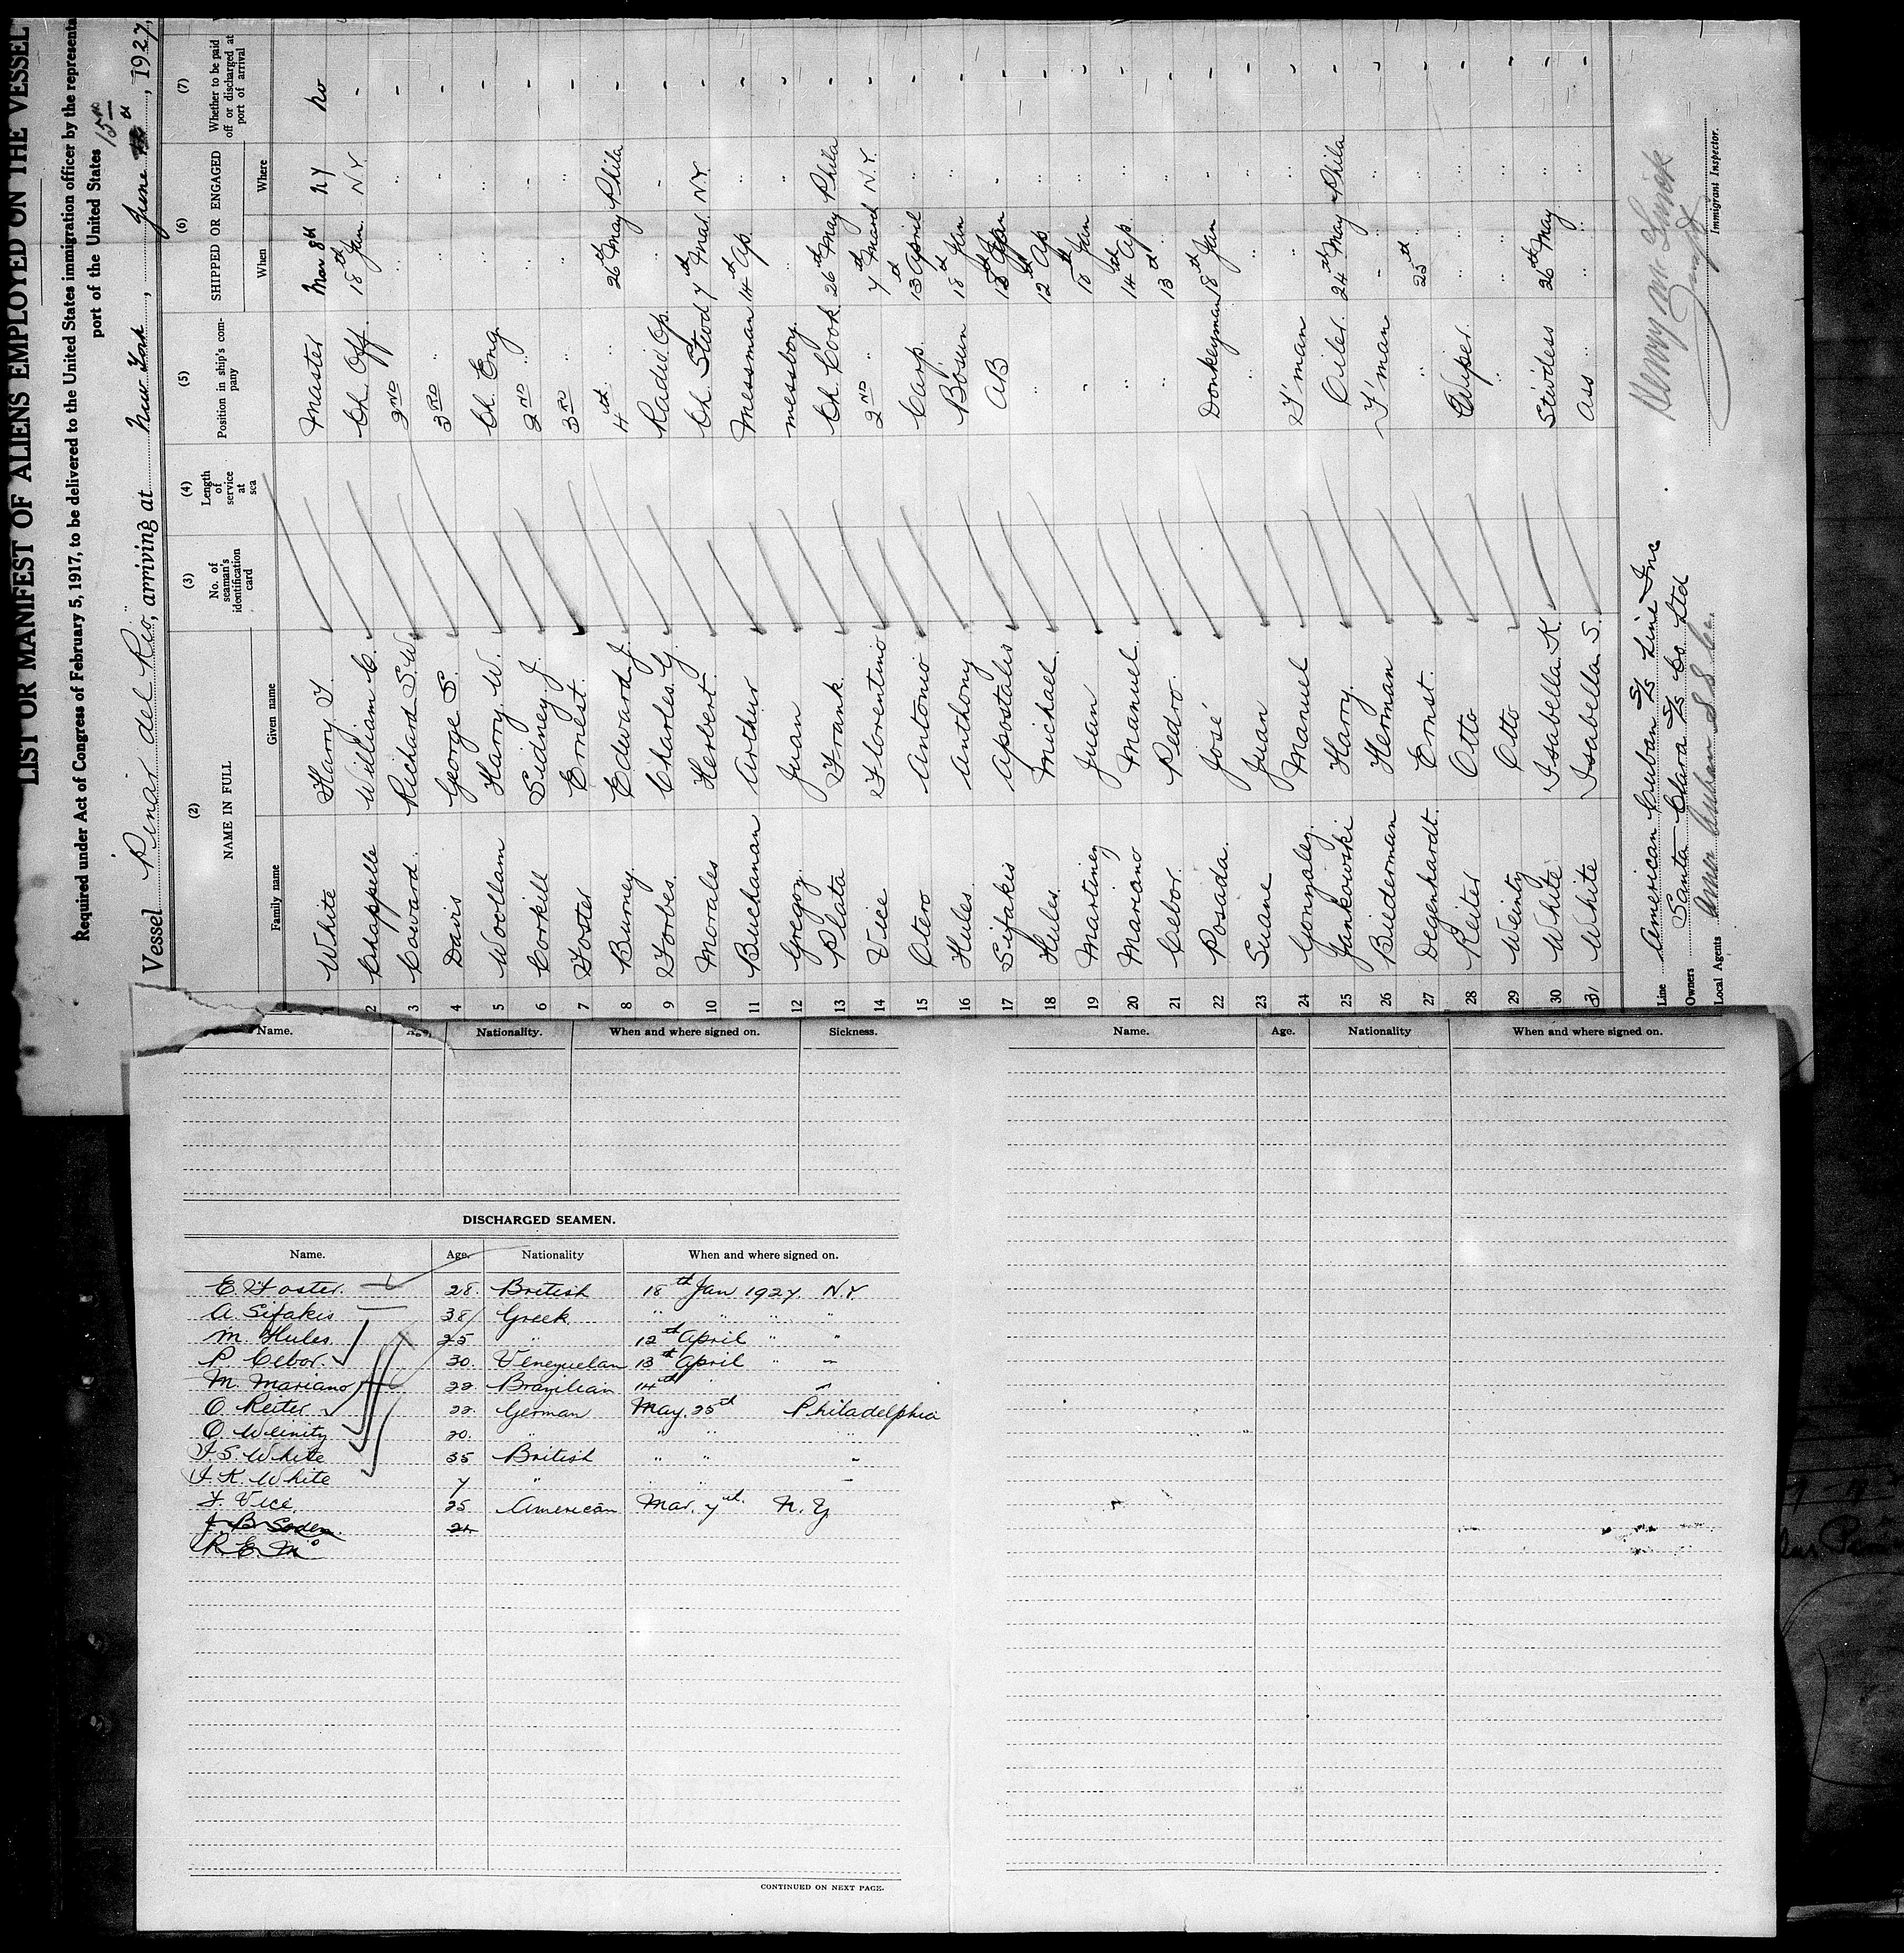 LIST OR MANIFEST OF ALIENS EMPLOYED ON THE VESSEL
Required under Act of Congress of February 5, 1917, to be delivered to the United States immigration officer by the represent
port of the United States
Vessel Pinar del Rio, arriving at New York, June 15th, 1927
(2) (3) (4) (5) (6) (7)
NAME IN FULL No. of seaman's identification card Length of service at sea Position in ship's company SHIPPED OR ENGAGED Whether to be paid off or discharged at port of arrival
Family name Given name When Where
White Harry T. Master Mar 8th NY No
2 Chappelle William C. Ch. Off. 18th Jan. N.Y. -
3 Coward. Richard S.W. 2ND " " -
4 Davis George S. 3RD " " -
5 Woollam Harry W. Ch. Eng. " " -
6 Corkill Sidney J. 2ND " " " -
7 Foster Ernest. 3RD " " " -
8 Burney. Edward J. 4th " 26th May Phila -
9 Forbes. Charles. G. Radio Op. -
10 Morales Herbert. Ch. Stwd 7th Mar. N.Y. -
11 Buchanan Arthur Messman 14th Ap. " -
12 Gregory. Juan messboy. " -
13 Plata Frank. Ch. Cook. 26th May Phila -
14 Vice Florentino 2ND " 7th March N.Y. -
15 Otero Antonio Carp. 13th April " -
16 Hules. Anthony Bosun 18th Jan " -
17 Sifakis Apostalis AB 18th Jan " -
18 Hules. Michael. " 12th Ap. " -
19 Martinez Juan " 18th Jan " -
20 Mariano Manuel. " 14th Ap. " -
21 Cebor. Pedro. " 13th " " -
22 Posada. José Donkeyman 18th Jan " -
23 Suane Juan " " " -
24 Gonzalez. Manuel F'man " " -
25 Jankowski Harry. Oiler. 24th May Phila -
26 Biederman Herman F'man " " -
27 Degenhardt. Ernst. " 25th " -
28 Reiter Otto Wiper. " " -
29 Weinitz Otto " " " -
30 White Isabella K. Stewdess 26th May " -
31 White Isabella S. Ass " " " -
Line American Cuban S/S Line Inc
Owners Santa Clara S/S Co Ltd
Local Agents Amer Cuban S.S. Co.
Immigrant Inspector.
Name. Age. Nationality. When and where signed on. Sickness.
DISCHARGED SEAMEN.
Name. Age. Nationality When and where signed on.
E. Foster. 28. British 18th Jan 1927. N.Y
A. Sifakis 38 Greek " " " "
M. Hules. 25 " 12th April " "
P. Cebor. 30. Venezuelan 13th April " "
M. Mariano 22. Brazilian 14th " "
O. Reiter 22. German May. 25th Philadelphia
O. Weinitz 20. " " " "
I. S. White 35 British " " "
I. K. White 7 " " " "
F. Vice. 25 American Mar. 7th. N.Y.
J. B. Soden. 24
R. E. M
CONTINUED ON NEXT PAGE.
Name. Age. Nationality When and where signed on.